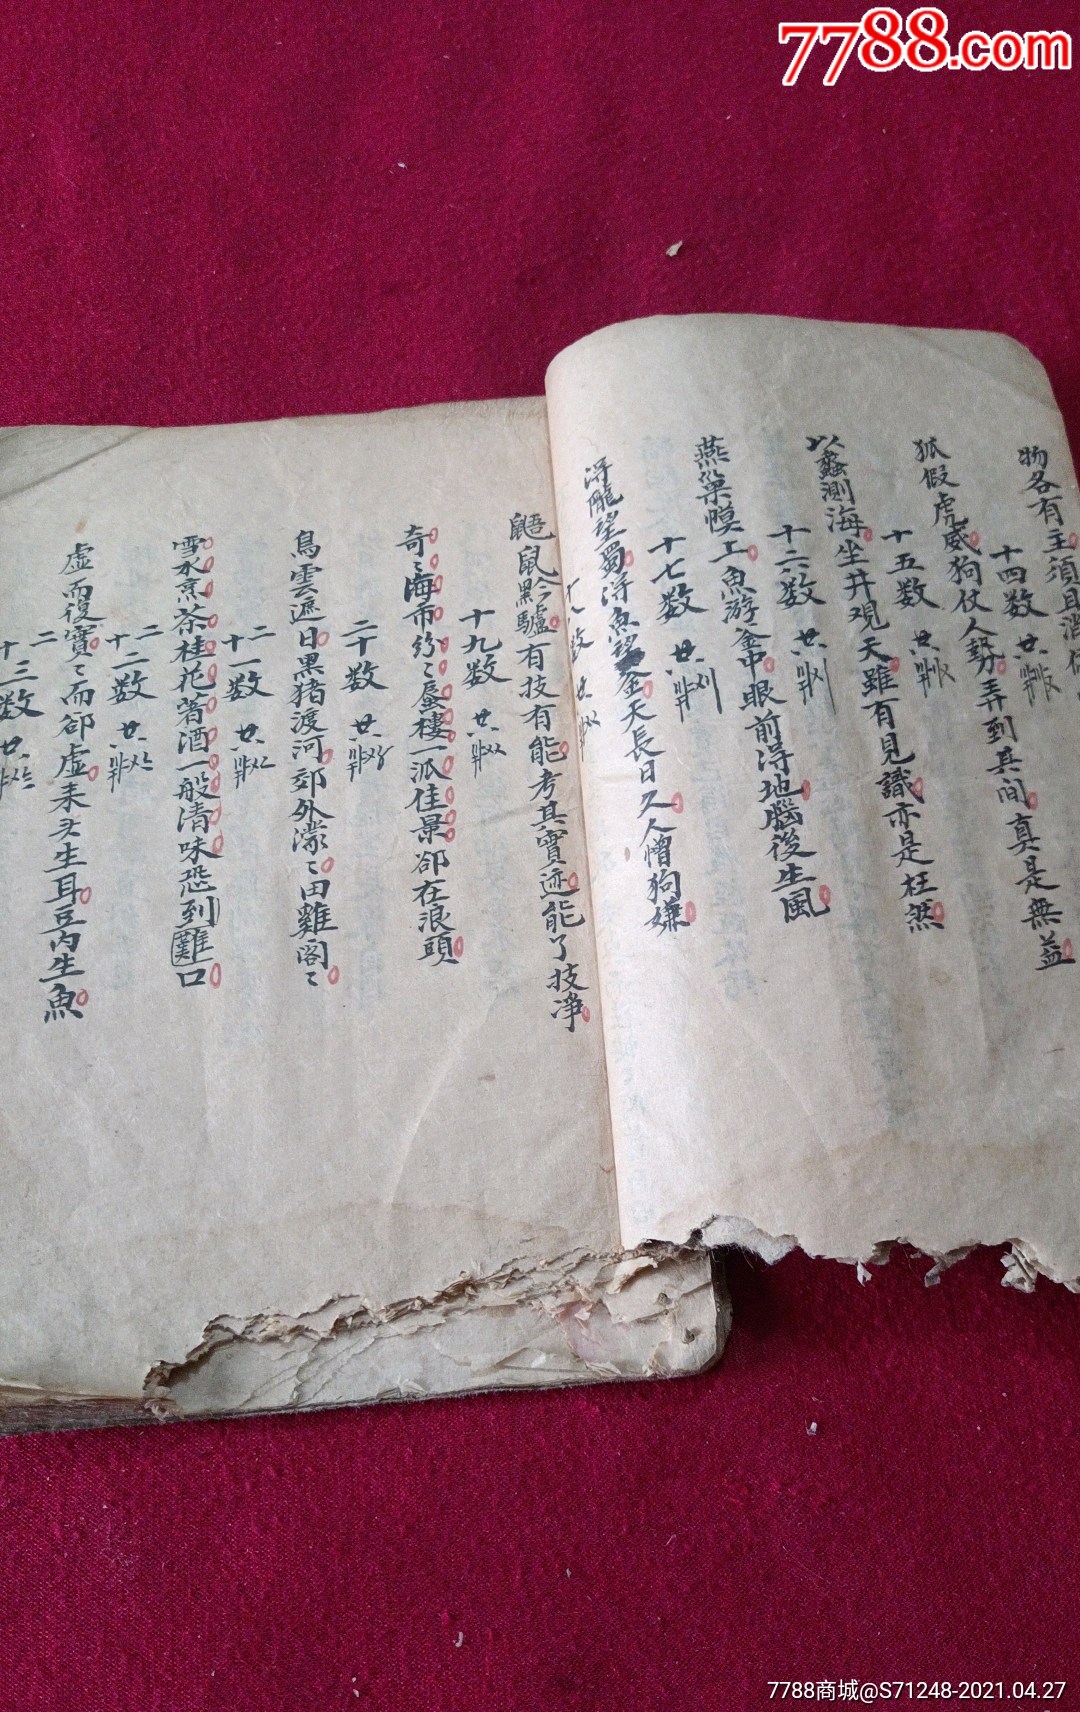 7788.com
物各有主須且消
十四数
狐假虎威狗仗人勢弄到其间真是無益
十五数
以蠡測海坐井观天雖有見識亦是枉然
十六数
燕巢幙上魚游釜中眼前淂地腦後生風
十七数
淂隴望蜀淂魚釜天長日久人憎狗嫌
十八数
鼯鼠黔驢有技有能考其實迹能了技净
十九数
奇〻海市纷〻蜃樓一派佳景郤在浪頭
二十数
鳥雲遮日黒猪渡河郊外濛〻田雞阁〻
二十一数
雪水烹茶桂花著酒一般清味恐到難口
二十二数
虚而復實〻而郤虚耒生耳豆内生魚
二十三数
7788商城@S71248-2021.04.27